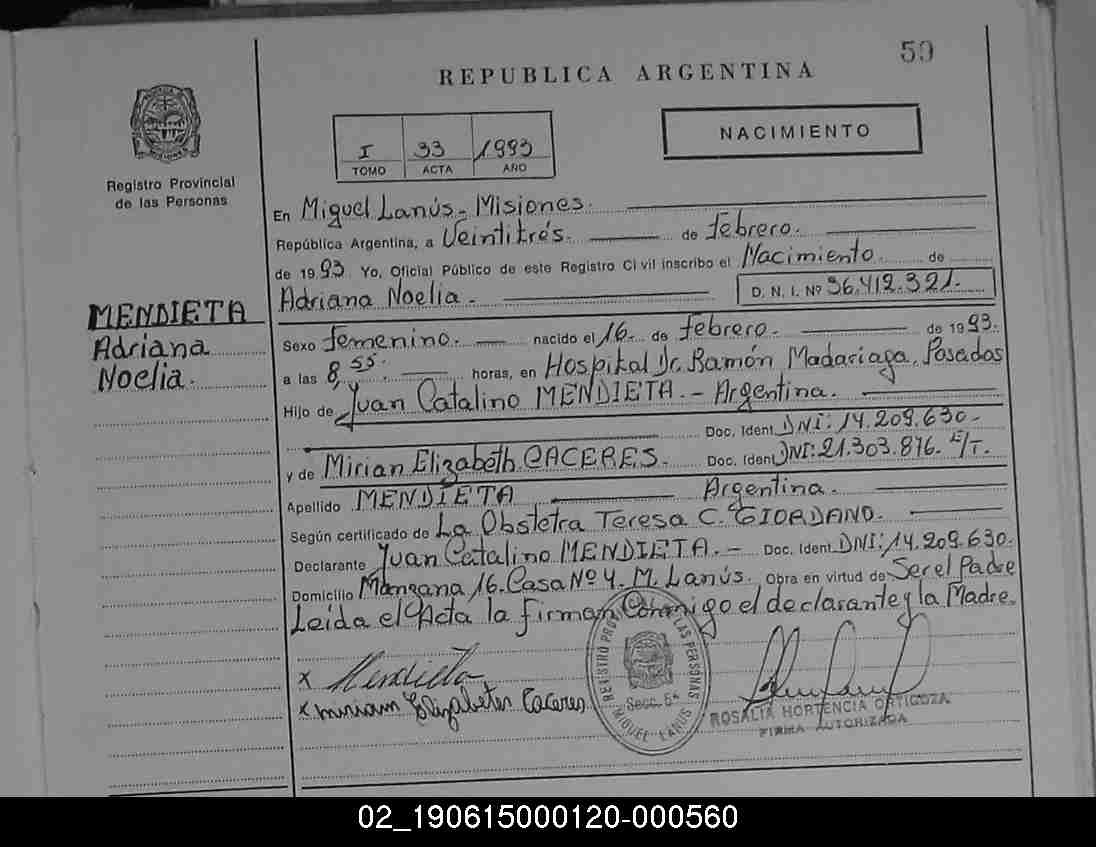 59
REPUBLICA ARGENTINA
I 33 1993
TOMO ACTA AÑO
NACIMIENTO
Registro Provincial
de las Personas
MENDIETA
Adriana
Noelia.
En Miguel Lanús - Misiones.
República Argentina, a Veintitrés. de febrero.
de 1993 Yo, Oficial Público de este Registro Civil inscribo el Nacimiento de
Adriana Noelia. D. N. I. Nº 36.412.321.
Sexo femenino. nacido el 16. de febrero. de 1993.
a las 8,55. horas, en Hospital Dr. Ramón Madariaga. Posadas
Hijo de Juan Catalino MENDIETA. - Argentina.
Doc. Ident. DNI: 14.209.630.
y de Mirian Elizabeth CACERES. Doc. Ident. DNI: 21.303.876. E/T.
Apellido MENDIETA Argentina.
Según certificado de La Obstetra Teresa C. GIORDANO.
Declarante Juan Catalino MENDIETA. - Doc. Ident. DNI: 14.209.630.
Domicilio Manzana 16. Casa Nº 4. M. Lanús. Obra en virtud de Ser el Padre
Leída el Acta la firman Conmigo el declarante y la Madre.
x Mendieta
x Miriam Elizabeten Caceres
REGISTRO PROV. DE LAS PERSONAS
Secc. 5ª
MIGUEL LANUS
ROSALIA HORTENCIA ORTIGOZA
FIRMA AUTORIZADA
02_190615000120-000560